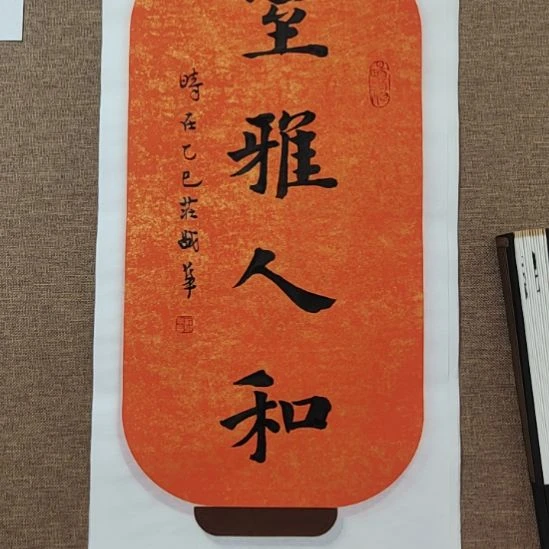 室雅人和
時在乙巳莊華